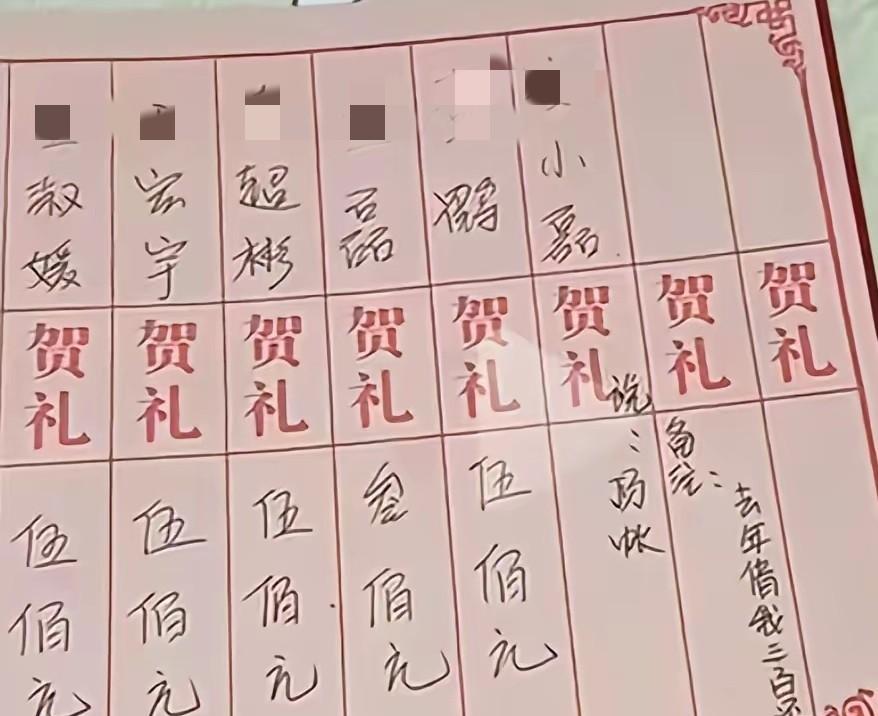 淑媛
贺礼
伍佰元
宏宇
贺礼
伍佰元
超彬
贺礼
伍佰元
磊
贺礼
叁佰元
鹏
贺礼
伍佰元
小磊
贺礼
说：帐
贺礼
备注：
贺礼
去年借我三百